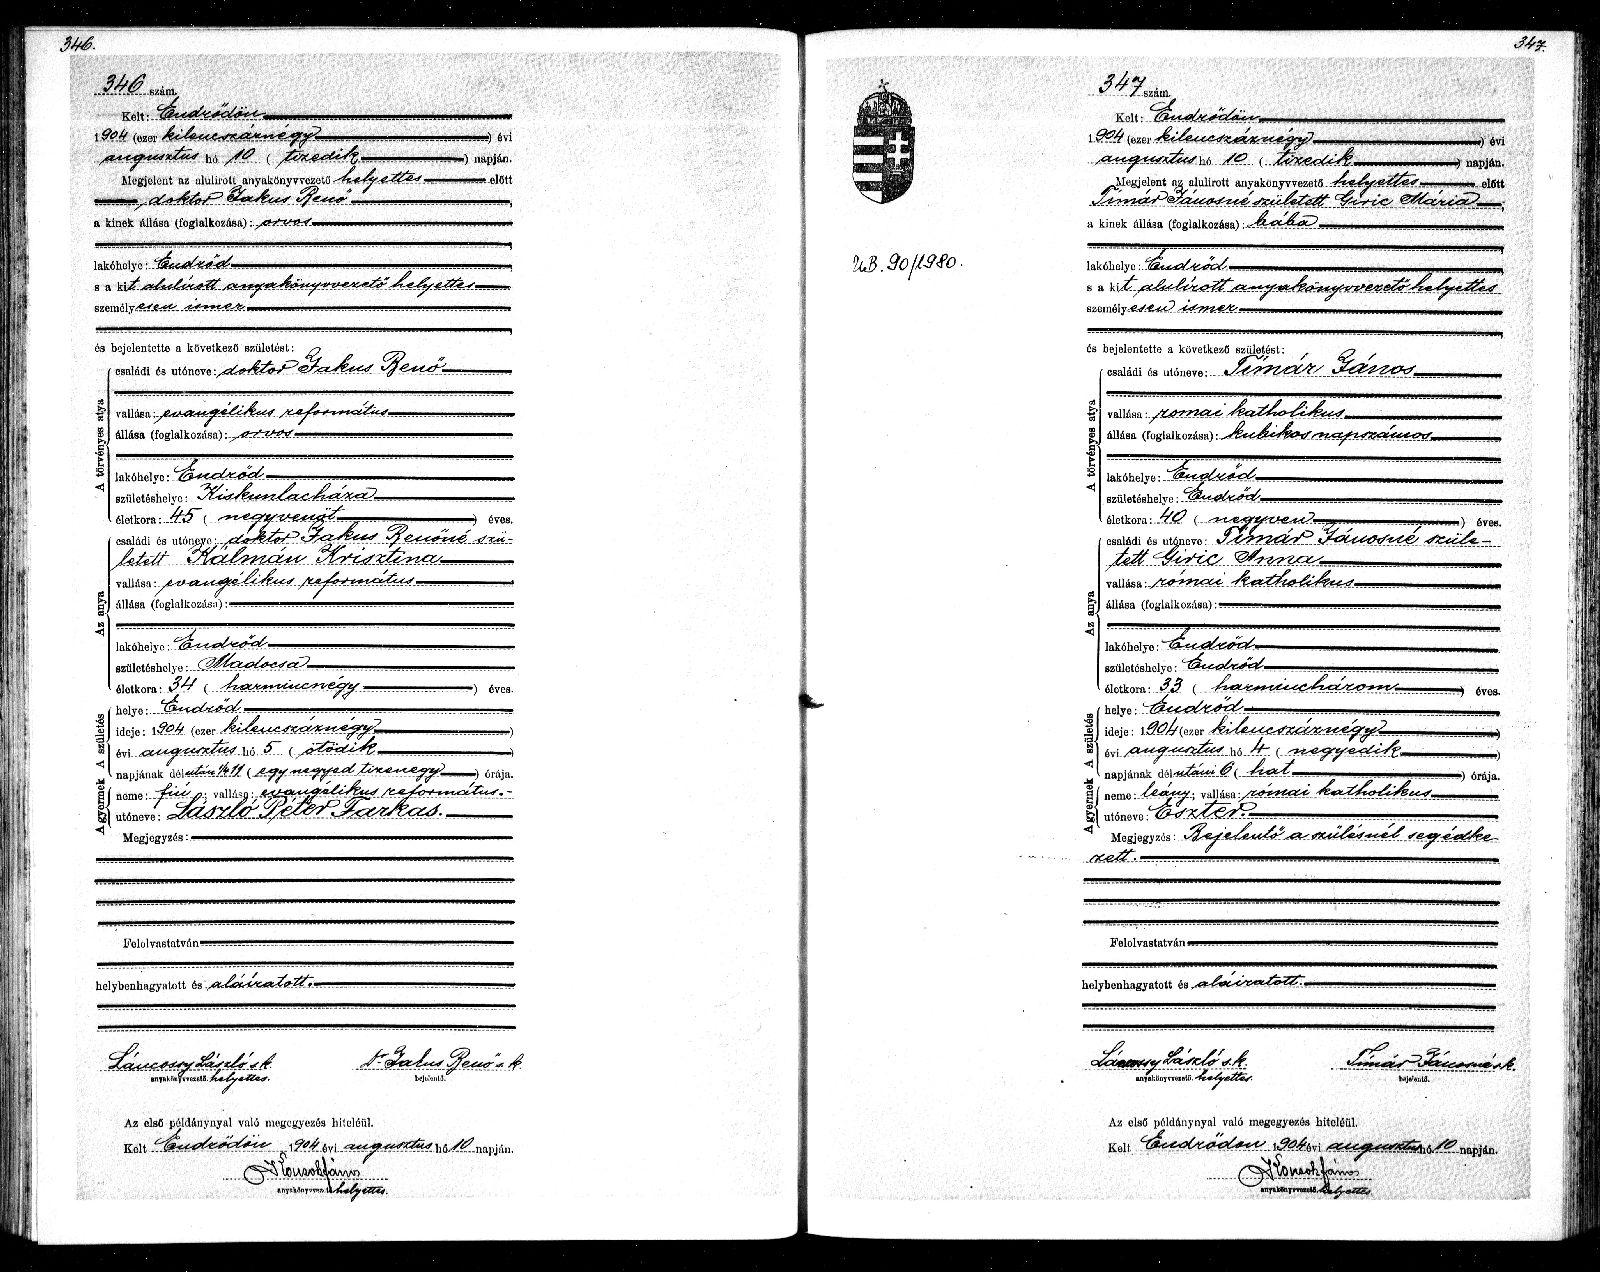 346.
346 szám.
Kelt: Endrődön
1904 (ezer kilencszáznégy) évi
augusztus hó 10 (tizedik) napján.
Megjelent az alulirott anyakönyvvezető helyettes előtt
doktor Jakus Renő,
a kinek állása (foglalkozása): orvos
lakóhelye: Endrőd
s a kit alulírott anyakönyvvezető helyettes
személyesen ismer
és bejelentette a következő születést:
A törvényes atya
családi és utóneve: doktor Jakus Renő
vallása: evangélikus református
állása (foglalkozása): orvos
lakóhelye: Endrőd
születéshelye: Kiskunlacháza
életkora: 45 (negyvenöt) éves.
Az anya
családi és utóneve: doktor Jakus Renőné szü-
letett Kálmán Krisztina
vallása: evangélikus református
állása (foglalkozása):
lakóhelye: Endrőd
születéshelye: Madocsa
életkora: 34 (harmincnégy) éves.
A születés
helye: Endrőd
ideje: 1904 (ezer kilencszáznégy)
évi augusztus hó 5 (ötödik)
napjának délután ¼11 (egy negyed tizenegy) órája.
A gyermek
neme: fiú; vallása: evangélikus református.-
utóneve: László Péter Farkas.
Megjegyzés:
Felolvastatván
helybenhagyatott és aláíratott.
Láncossy László s.k. Dr Jakus Renő s.k.
anyakönyvvezető helyettes. bejelentő.
Az első példánynyal való megegyezés hiteléül.
Kelt Endrődön 1904 évi augusztus hó 10 napján.
anyakönyvvezető helyettes.
347.
347 szám.
Kelt: Endrődön
1904 (ezer kilencszáznégy) évi
augusztus hó 10 (tizedik) napján.
Megjelent az alulirott anyakönyvvezető helyettes előtt
Tímár Jánosné született Giric Mária,
a kinek állása (foglalkozása): bába
U.B. 90/1980.
lakóhelye: Endrőd
s a kit alulírott anyakönyvvezető helyettes
személyesen ismer
és bejelentette a következő születést:
A törvényes atya
családi és utóneve: Tímár János
vallása: romai katholikus
állása (foglalkozása): kubikos napszámos
lakóhelye: Endrőd
születéshelye: Endrőd
életkora: 40 (negyven) éves.
Az anya
családi és utóneve: Tímár Jánosné szüle-
tett Giric Anna
vallása: római katholikus
állása (foglalkozása):
lakóhelye: Endrőd
születéshelye: Endrőd
életkora: 33 (harminchárom) éves.
A születés
helye: Endrőd
ideje: 1904 (ezer kilencszáznégy)
évi augusztus hó 4 (negyedik)
napjának délutáni 6 (hat) órája.
A gyermek
neme: leány; vallása: római katholikus
utóneve: Eszter.
Megjegyzés: Bejelentő a szülésnél segédke-
zett.
Felolvastatván
helybenhagyatott és aláíratott.
László s.k. Tímár Jánosné s.k.
anyakönyvvezető helyettes. bejelentő.
Az első példánynyal való megegyezés hiteléül.
Kelt Endrődön 1904 évi augusztus hó 10 napján.
anyakönyvvezető helyettes.